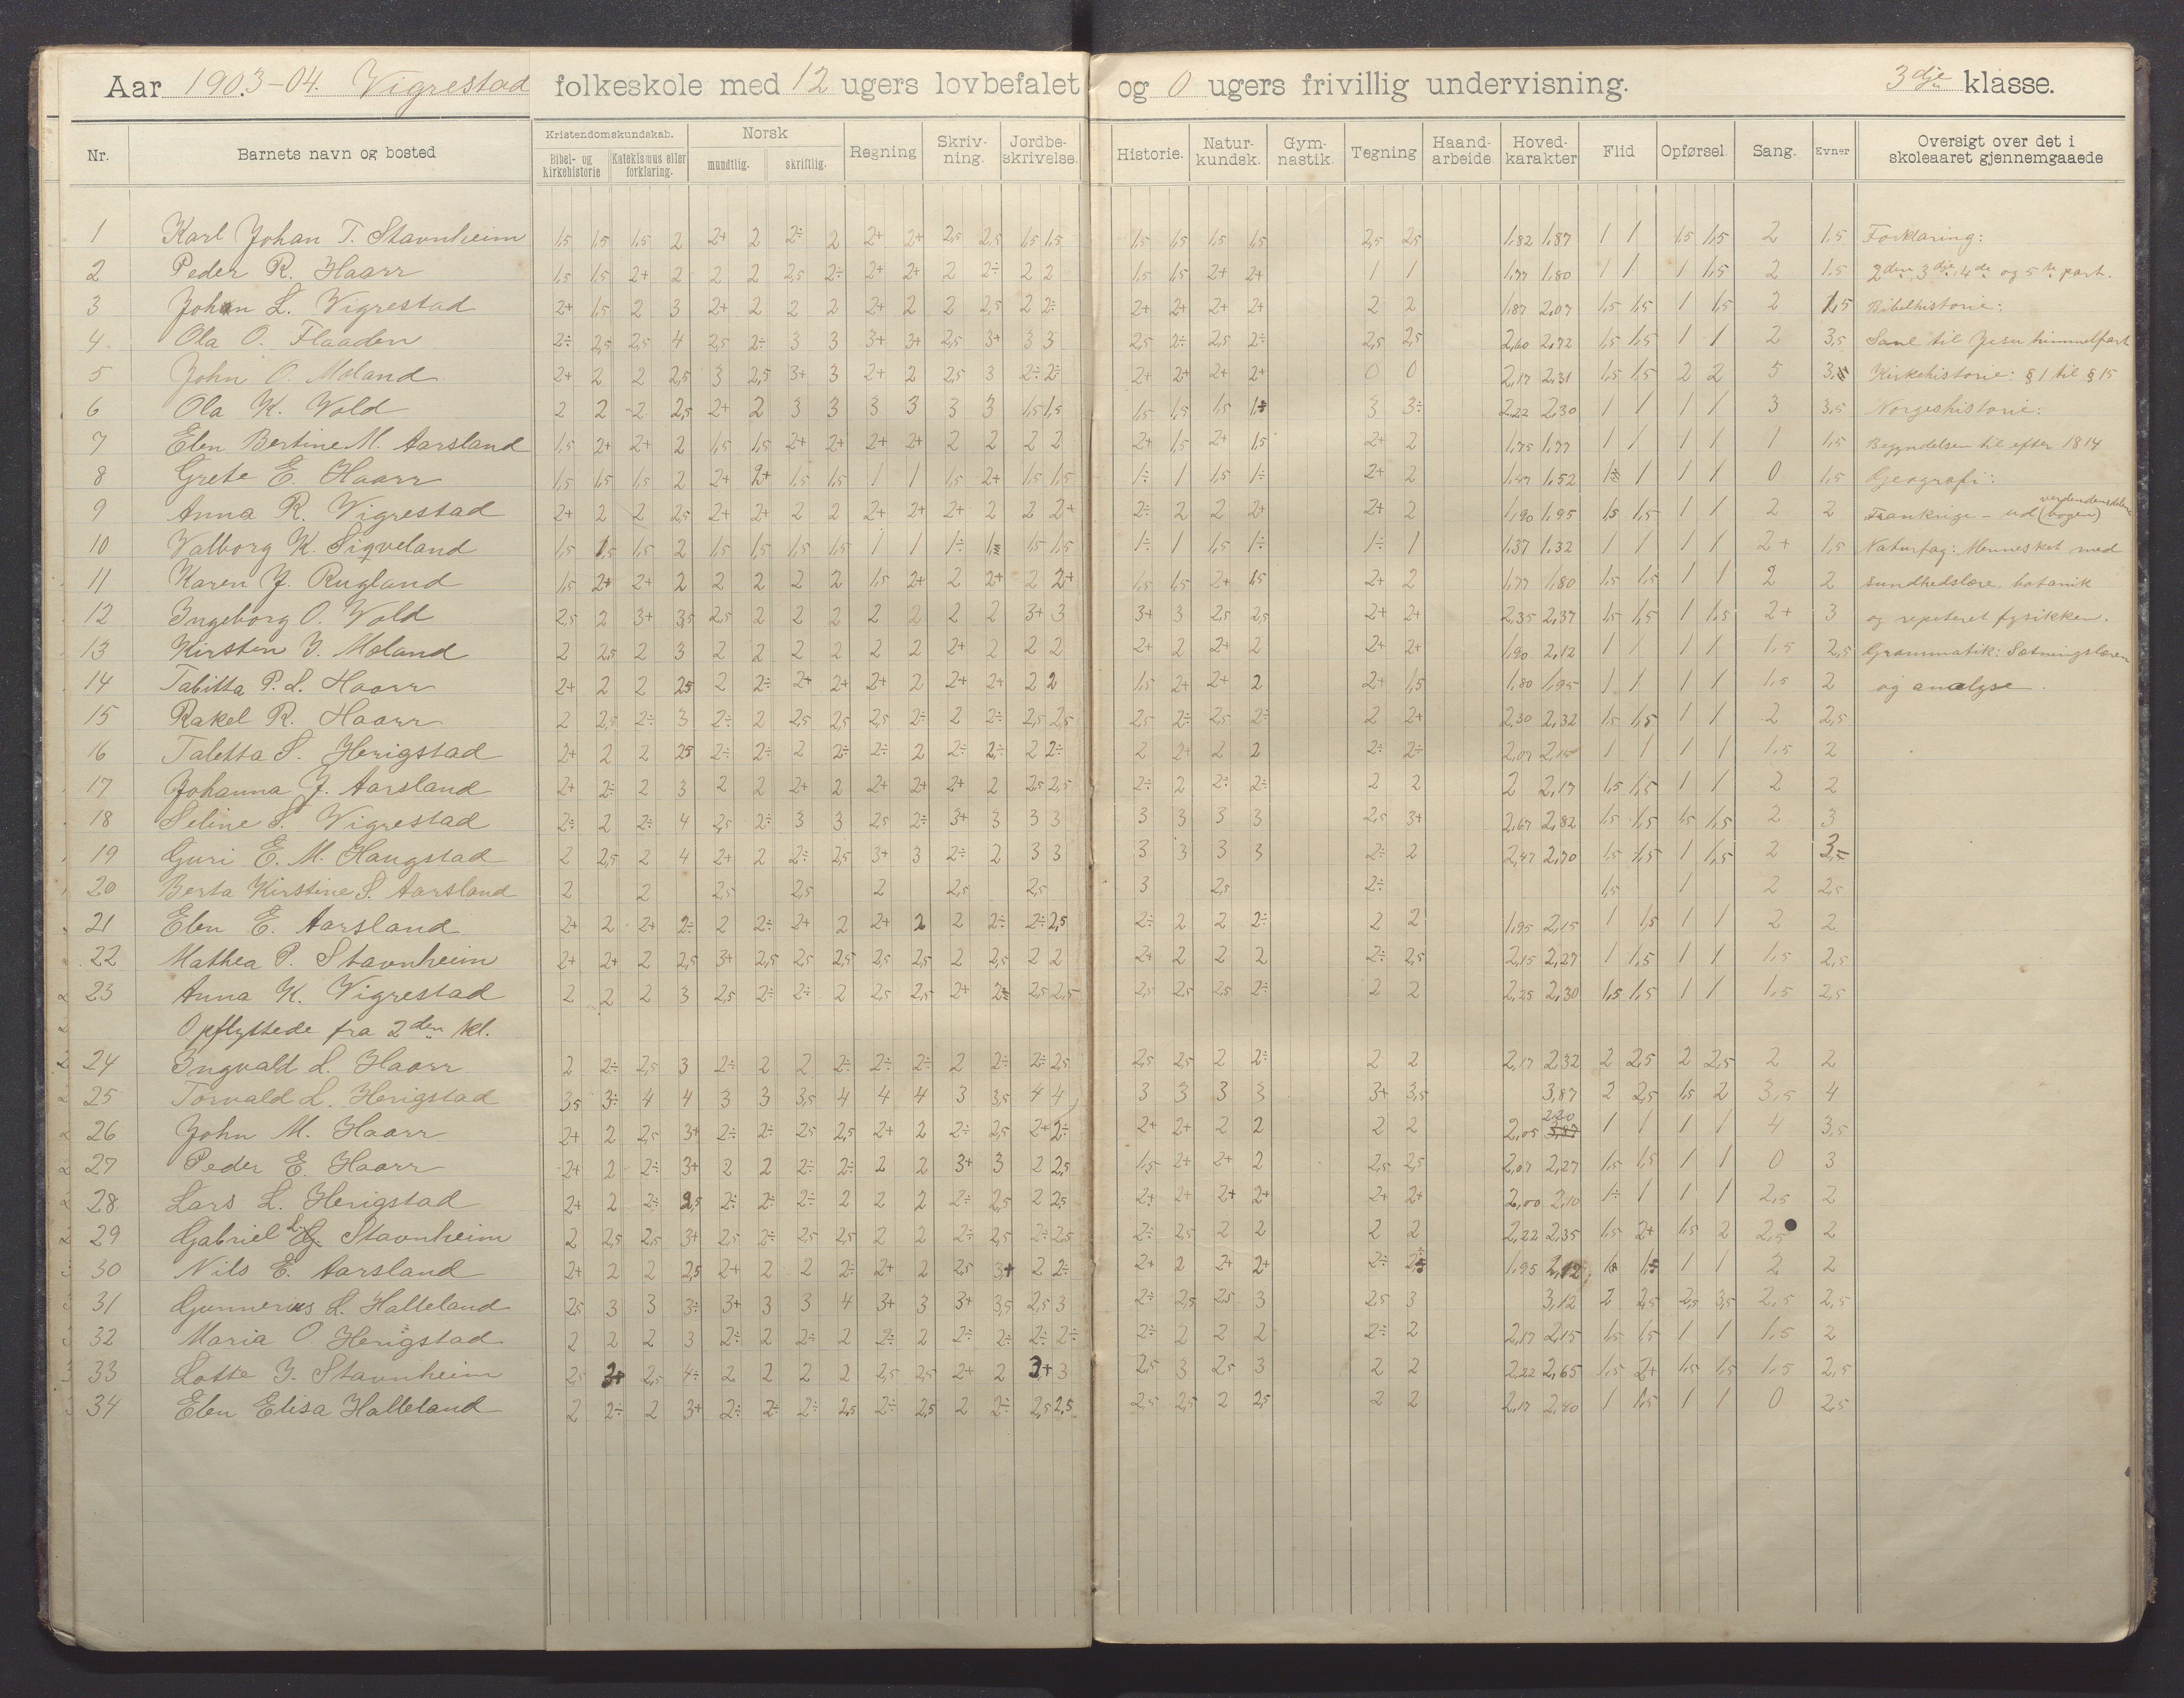 Aar 1903-04. Vigrestad folkeskole med 12 ugers lovbefalet og 0 ugers frivillig undervisning. 3dje klasse.
Nr. Barnets navn og bosted Kristendomskundskab. Norsk Regning Skriv-ning. Jordbe-skrivelse. Historie. Natur-kundsk. Gym-nastik. Tegning Haand-arbeide Hoved-karakter Flid Opførsel Sang. Evner Oversigt over det i skoleaaret gjennemgaaede
Bibel- og kirkehistorie Katekismus eller forklaring. mundtlig. skriftlig.
1 Karl Johan T. Stavnheim 1,5 1,5 1,5 2 2+ 2 2÷ 2 2+ 2+ 2,5 2,5 1,5 1,5 1,5 1,5 1,5 1,5 2,5 2,5 1,82 1,87 1 1 1,5 1,5 2 1,5 Forklaring:
2 Peder R. Haarr 1,5 1,5 2+ 2 2 2 2,5 2÷ 2+ 2+ 2 2÷ 2 2 1,5 1,5 2+ 2+ 1 1 1,77 1,80 1 1 1 1,5 2 1,5 2den 3dje 4de og 5te part.
3 Johan L. Vigrestad 2+ 1,5 2 3 2+ 2 2 2 2+ 2 2 2,5 2 2÷ 2+ 2+ 2+ 2+ 2 2 1,87 2,07 1,5 1,5 1 1,5 2 1,5 Bibelhistorie:
4 Ola O. Flaaden 2÷ 2,5 2,5 4 2,5 2÷ 3 3 3+ 3+ 2,5 3+ 3 3 2,5 2÷ 2,5 2÷ 2,5 2,5 2,60 2,72 1,5 1,5 1 1 2 3,5 Saul til Jesu himmelfart
5 John O. Moland 2+ 2 2 2,5 3 2,5 3+ 3 2+ 2 2,5 3 2÷ 2÷ 2+ 2+ 2+ 2+ 0 0 2,17 2,31 1,5 1,5 2 2 5 3,5 Kirkehistorie: § 1 til § 15
6 Ola K. Vold 2 2 2 2,5 2+ 2 3 3 3 3 3 3 1,5 1,5 1,5 1,5 1,5 1÷ 3 3÷ 2,22 2,30 1 1 1 1 3 3,5 Norgeshistorie:
7 Elen Bertine M. Aarsland 1,5 2+ 2+ 2 1,5 1,5 2+ 2+ 2+ 2+ 2 2 2 2 2+ 1,5 2+ 1,5 2+ 2 1,75 1,77 1 1 1 1 1 1,5 Begyndelsen til efter 1814
8 Grete E. Haarr 1,5 1,5 1,5 2 2+ 2+ 1,5 1,5 1 1 1,5 2+ 1,5 1,5 1÷ 1 1,5 1÷ 2+ 2 1,47 1,52 1÷ 1 1 1 0 1,5 Geografi:
9 Anna R. Vigrestad 2+ 2 2 2,5 2+ 2+ 2 2 2+ 2+ 2+ 2 2 2+ 2÷ 2 2 2+ 2+ 2 1,90 1,95 1,5 1,5 1 1 2 2 Frankrige - ud (bogen)
10 Valborg K. Sigveland 1,5 1,5 1,5 2 1,5 1,5 1,5 1,5 1 1 1÷ 1÷ 1,5 1,5 1÷ 1 1,5 1÷ 1÷ 1 1,37 1,32 1 1 1 1 2+ 1,5 Naturfag: Mennesket med
11 Karen J. Rugland 1,5 2+ 2+ 2 2 2 2 2 1,5 2+ 2 2+ 2 2+ 1,5 1,5 2+ 1,5 2+ 2 1,77 1,80 1,5 1,5 1 1 2 2 sundhedslære, botanik
12 Ingeborg O. Vold 2,5 2 3+ 3,5 2,5 2 2 2 2 2 2 2 3+ 3 3+ 3 2,5 2,5 2+ 2+ 2,35 2,37 1,5 1,5 1 1,5 2+ 3 og repeteret fysikken.
13 Kirsten J. Moland 2 2,5 2 3 2 2 2 2 2 2 2+ 2 2 2 2+ 2 2+ 2 2+ 2+ 1,90 2,12 1 1 1 1 1,5 2,5 Grammatik: Sætningslæren
14 Tabitta P. L. Haarr 2+ 2 2 2,5 2 2÷ 2+ 2+ 2+ 2 2+ 2+ 2 2 1,5 2+ 2+ 2 2+ 1,5 1,80 1,95 1 1 1 1 1,5 2 og analyse.
15 Rakel R. Haarr 2 2,5 2÷ 3 2÷ 2 2,5 2,5 2,5 2÷ 2 2÷ 2,5 2,5 2,5 2÷ 2,5 2÷ 2 2+ 2,30 2,32 1,5 1,5 1 1 2 2,5
16 Taletta S. Herigstad 2+ 2 2 2,5 2÷ 2÷ 2 2÷ 2÷ 2 2÷ 2÷ 2 2÷ 2 2+ 2 2 2÷ 2÷ 2,07 2,15 1 1 1 1 1,5 2
17 Johanna J. Aarsland 2+ 2÷ 2 3 2 2 2+ 2 2+ 2+ 2+ 2 2,5 2,5 2÷ 2 2÷ 2÷ 2 2 2 2,17 1,5 1,5 1 1 2 2
18 Seline S. Vigrestad 2÷ 2 2÷ 4 2,5 2÷ 3 3 2,5 2÷ 3+ 3 3 3 3 3 3 3 2,5 3+ 2,67 2,82 1,5 1,5 1,5 1,5 2 3
19 Guri E. M. Haugstad 2 2,5 2 4 2+ 2 2÷ 2,5 3+ 3 2÷ 2 3 3 3 3 3 3 2÷ 2 2,47 2,70 1,5 1,5 1 1,5 2 3,5
20 Berta Kirstine S. Aarsland 2 2 2,5 2,5 2 2,5 2,5 3 2,5 2÷ 1,5 1 2 2,5
21 Elen E. Aarsland 2+ 2 2+ 2÷ 2 2÷ 2+ 2 2+ 2 2 2÷ 2÷ 2,5 2÷ 2 2 2÷ 2 2 1,95 2,15 1 1,5 1 1 2 2
22 Mathea P. Stavnheim 2+ 2+ 2 2,5 3+ 2,5 2,5 2,5 2,5 2,5 2 2,5 2 2 2+ 2 2 2 2÷ 2,5 2,15 2,27 1 1,5 1 1 1,5 2,5
23 Anna K. Vigrestad 2 2 2 3 2,5 2÷ 2÷ 2 2,5 2,5 2+ 2÷ 2,5 2,5 2,5 2,5 2,5 2÷ 2 2 2,25 2,30 1,5 1,5 1 1 1,5 2,5
Opflyttede fra 2den kl.
24 Ingvald L. Haarr 2 2÷ 2,5 3 2÷ 2 2 2÷ 2÷ 2÷ 2 2÷ 2÷ 2,5 2,5 2,5 2 2÷ 2 2 2,17 2,32 2 2,5 2 2,5 2 2
25 Torvald L. Herigstad 3,5 3÷ 4 4 3 3 3,5 4 4 4 3 3,5 4 4 3 3 3 3 3+ 3,5 3,87 2 2,5 1,5 2 3,5 4
26 John M. Haarr 2+ 2 2,5 3+ 2÷ 2÷ 2,5 2,5 2+ 2 2÷ 2,5 2+ 2÷ 2+ 2+ 2 2 2 2 2,05 2,20 3,87 1 1 1 1 4 3,5
27 Peder E. Haarr 2+ 2 2÷ 3+ 2 2 2÷ 2÷ 2 2 3+ 3 2 2,5 1,5 2+ 2+ 2 2,5 2,5 2,07 2,27 1,5 1,5 1 1 0 3
28 Lars L. Herigstad 2+ 2 2÷ 2,5 2÷ 2÷ 2÷ 2 2 2 2÷ 2,5 2 2,5 2+ 2+ 2+ 2+ 2+ 2+ 2,00 2,10 1÷ 1 1 1 2,5 2
29 Gabriel L. G. Stavnheim 2 2,5 2,5 3+ 2,5 2÷ 2,5 2,5 2 2 2÷ 2,5 2÷ 2,5 2÷ 2,5 2 2 2 2 2,22 2,35 1,5 2+ 1,5 2 2,5 2
30 Nils E. Aarsland 2+ 2 2 2,5 2+ 2 2 2÷ 2+ 2 2,5 3+ 2 2÷ 2+ 2 2+ 2+ 2÷ 2÷ 1,95 2,12 1,5 1,5 1 1 2 2
31 Gunnerius L. Halleland 2,5 3 3 3÷ 3+ 3 3 4 3+ 3 3+ 3,5 2,5 3 2÷ 2,5 2,5 3 2,5 3 3,12 2 2,5 2,5 3,5 2,5 2,5
32 Maria O. Herigstad 2 2 2 3 2÷ 2 2÷ 2 2÷ 2 2÷ 2÷ 2÷ 2÷ 2÷ 2 2 2 2÷ 2 2,17 2,15 1,5 1,5 1 1 1,5 2
33 Lotte J. Stavnheim 2,5 3+ 2,5 4÷ 2 2 2 2 2,5 2,5 2+ 2 3+ 3 2,5 3 2,5 3 2 2 2,22 2,65 1,5 2+ 1,5 1,5 1,5 2,5
34 Elen Elisa Halleland 2 2÷ 2 3+ 2÷ 2÷ 2÷ 2,5 2÷ 2,5 2 2÷ 2,5 2,5 2,5 2,5 2 2,5 2 2 2,17 2,40 1 1,5 1 1 0 2,5